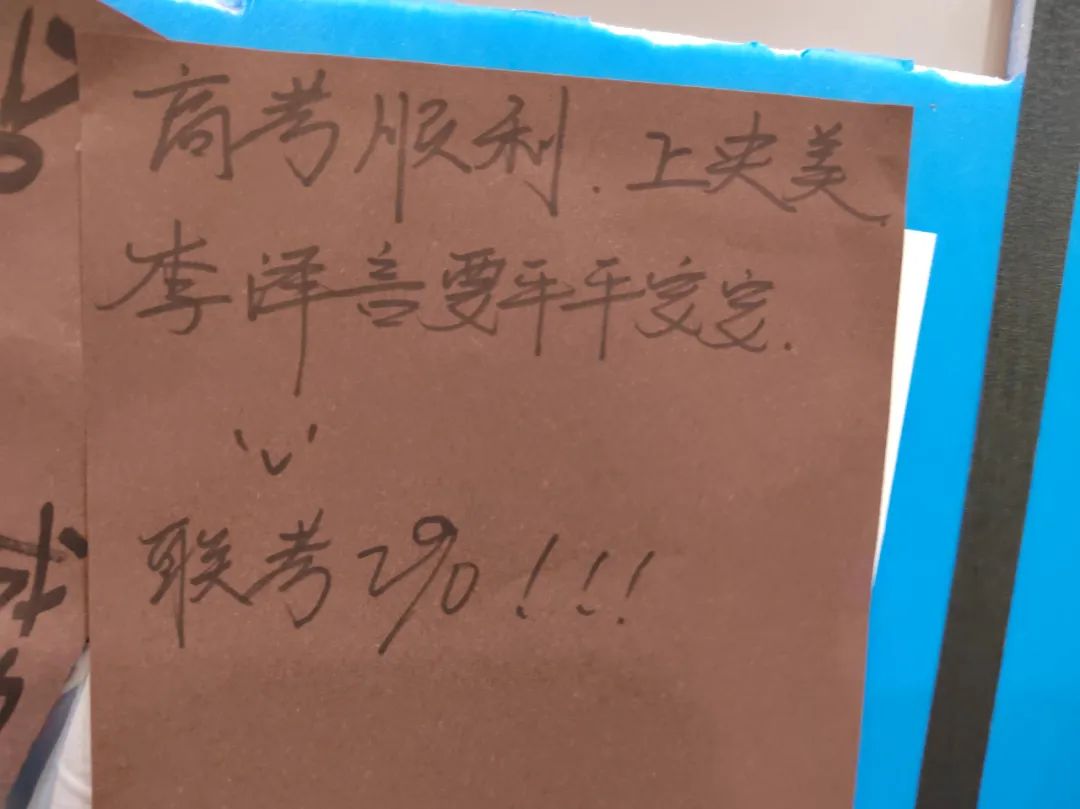 高考顺利.上央美
李泽言要平平安安.
联考290!!!